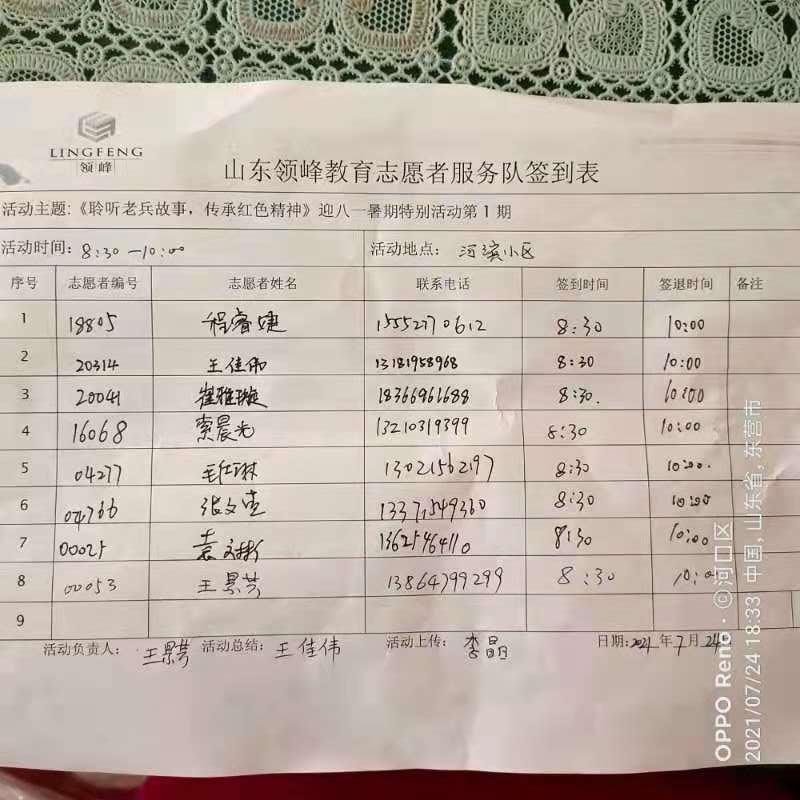 LINGFENG
领峰
山东领峰教育志愿者服务队签到表
活动主题:《聆听老兵故事，传承红色精神》迎八一暑期特别活动第1期
活动时间: 8:30—10:00 活动地点: 河滨小区
序号 志愿者编号 志愿者姓名 联系电话 签到时间 签退时间 备注
1 18805 程睿婕 15552770612 8:30 10:00
2 20314 王佳伟 13181958968 8:30 10:00
3 20041 崔雅璇 18366961688 8:30. 10:00
4 16068 索晨光 13210319399 8:30 10:00
5 04277 毛红琳 13021562197 8:30 10:00.
6 04766 张文 8:30 10:00
7 00025 袁 13625464110 8:30 10:00
8 00053 王景芬 13864799299 8:30 10:0
9
活动负责人: 王景芬 活动总结: 王佳伟 活动上传: 李晶 日期: 2021年7月24
OPPO Reno · ©河口区
2021/07/24 18:33 中国, 山东省, 东营市